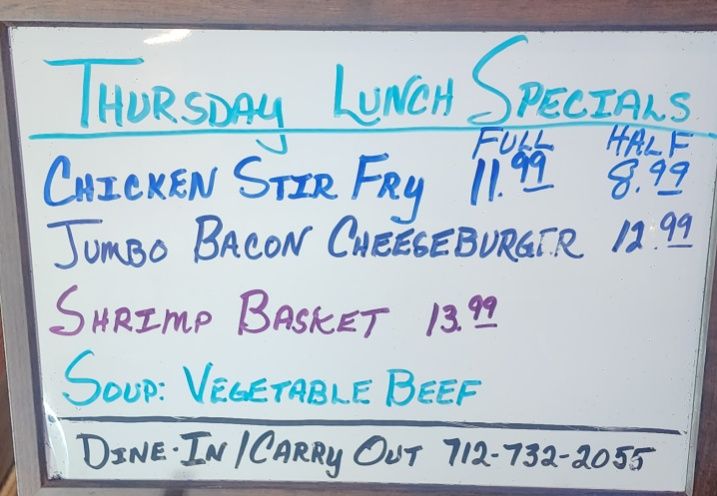 THURSDAY LUNCH SPECIALS
FULL HALF
CHICKEN STIR FRY 11.99 8.99
JUMBO BACON CHEESEBURGER 12.99
SHRIMP BASKET 13.99
SOUP: VEGETABLE BEEF
DINE-IN/CARRY OUT 712-732-2055